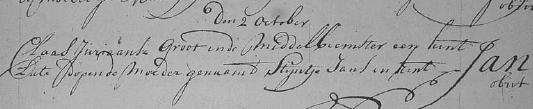 den 2 October
Claas Groot inde Middelbeemster een kint
Jan
doopende Moeder genaamt Trijntje Jans en kint
obiit